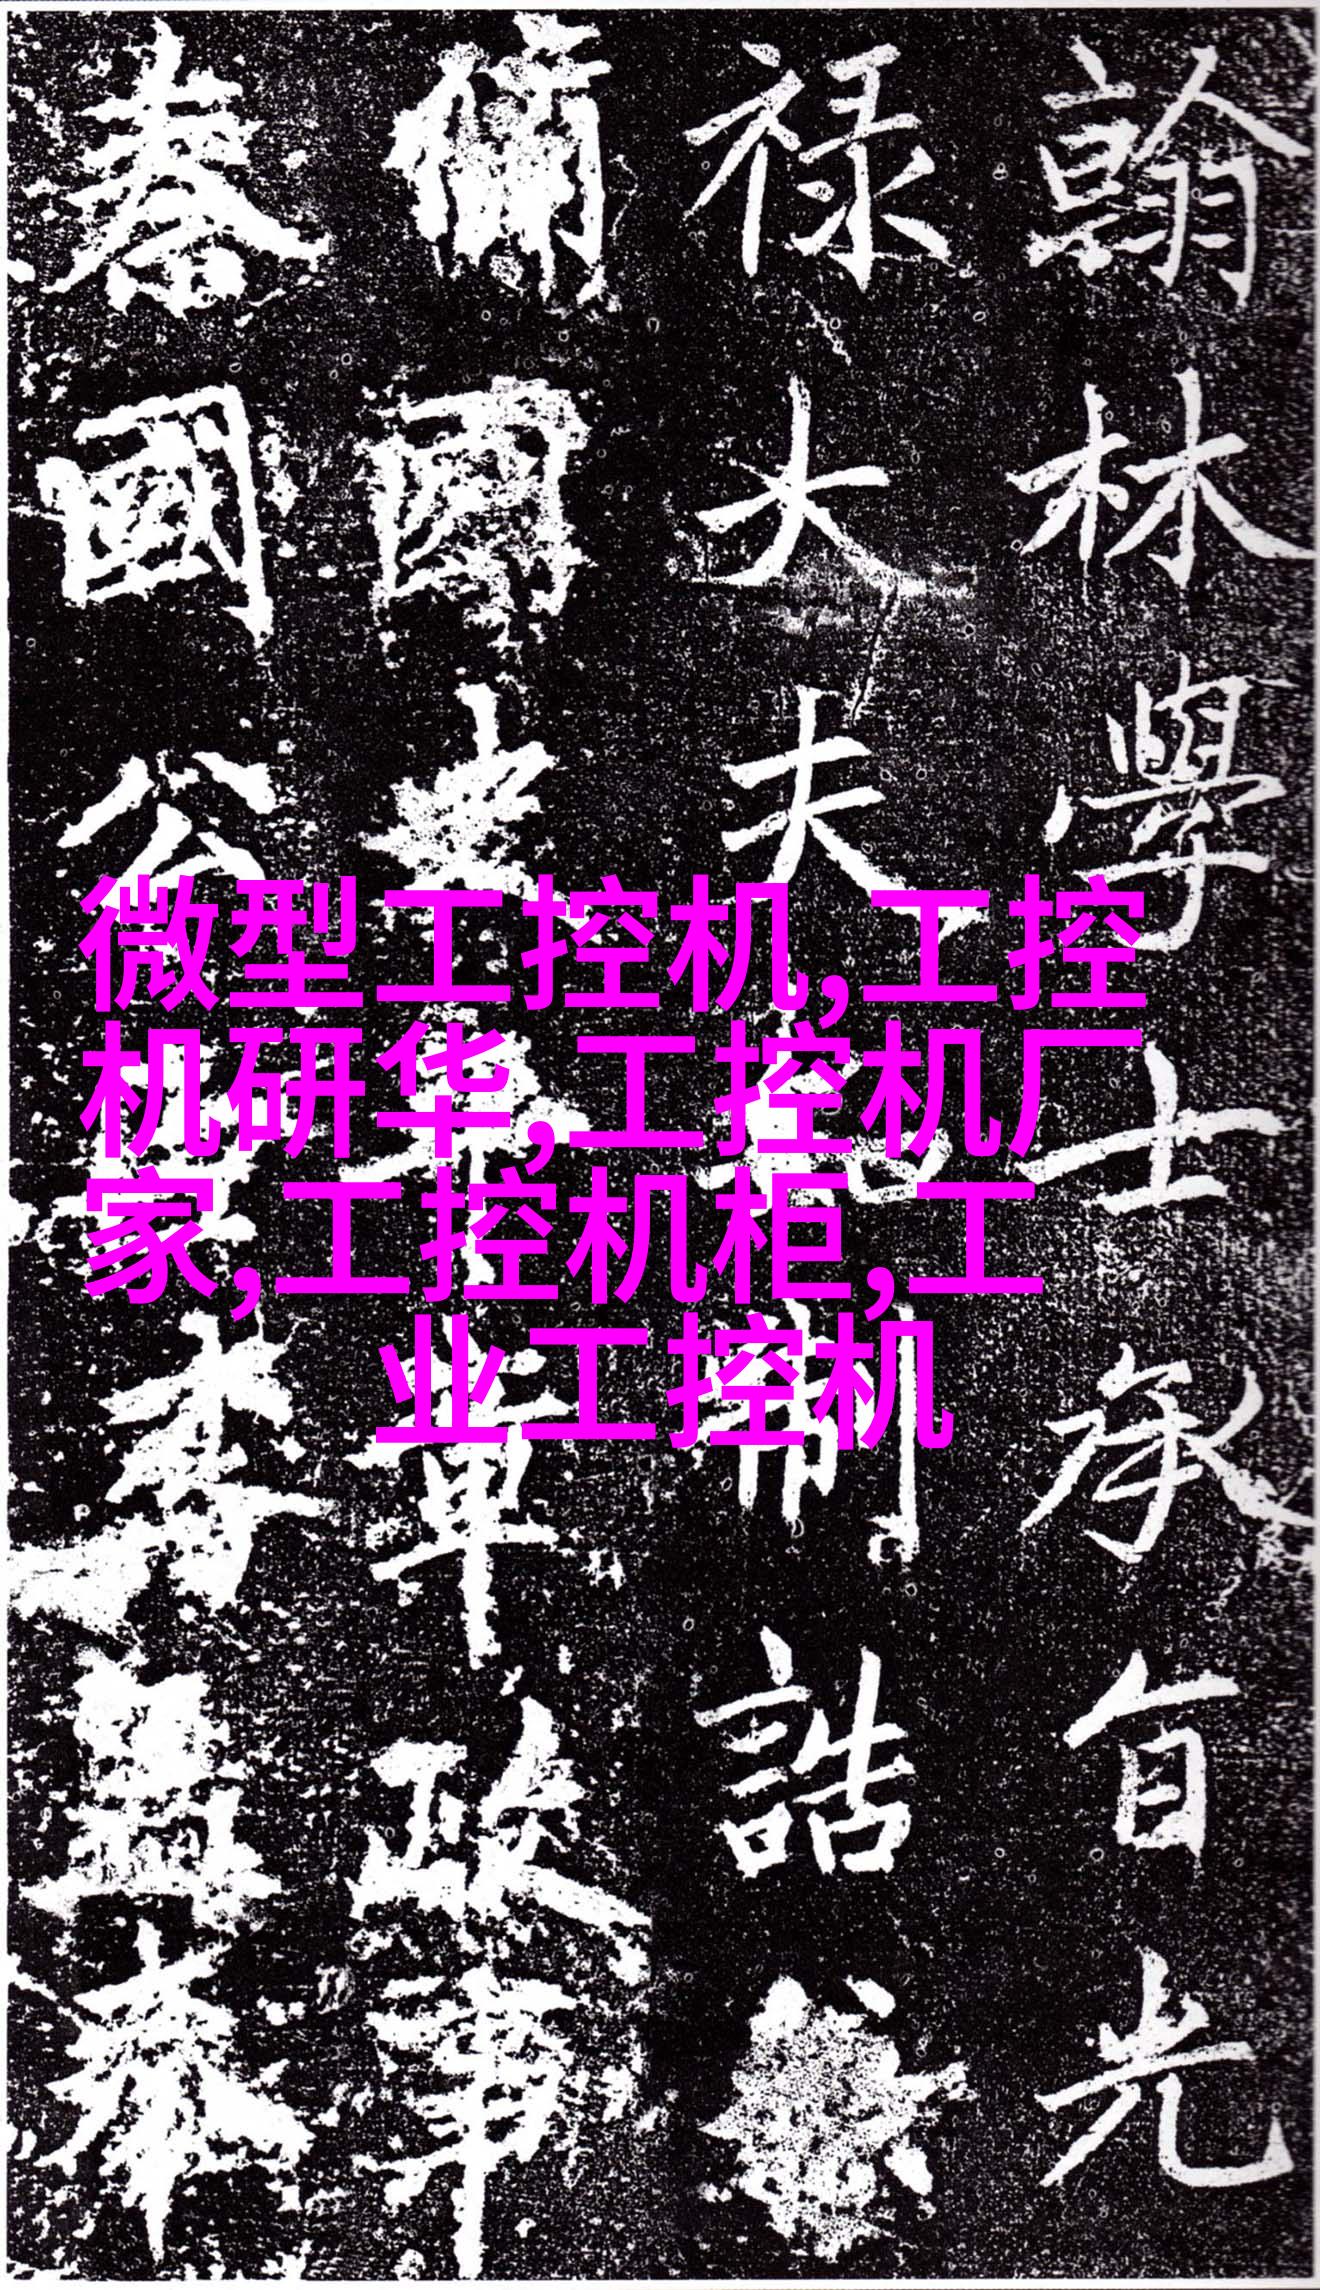 翰林學士承旨光
禄大夫制誥
脩國史章政事
秦國公李孟奉
微型工控机,工控
机研华,工控机厂
家,工控机柜,工
业工控机